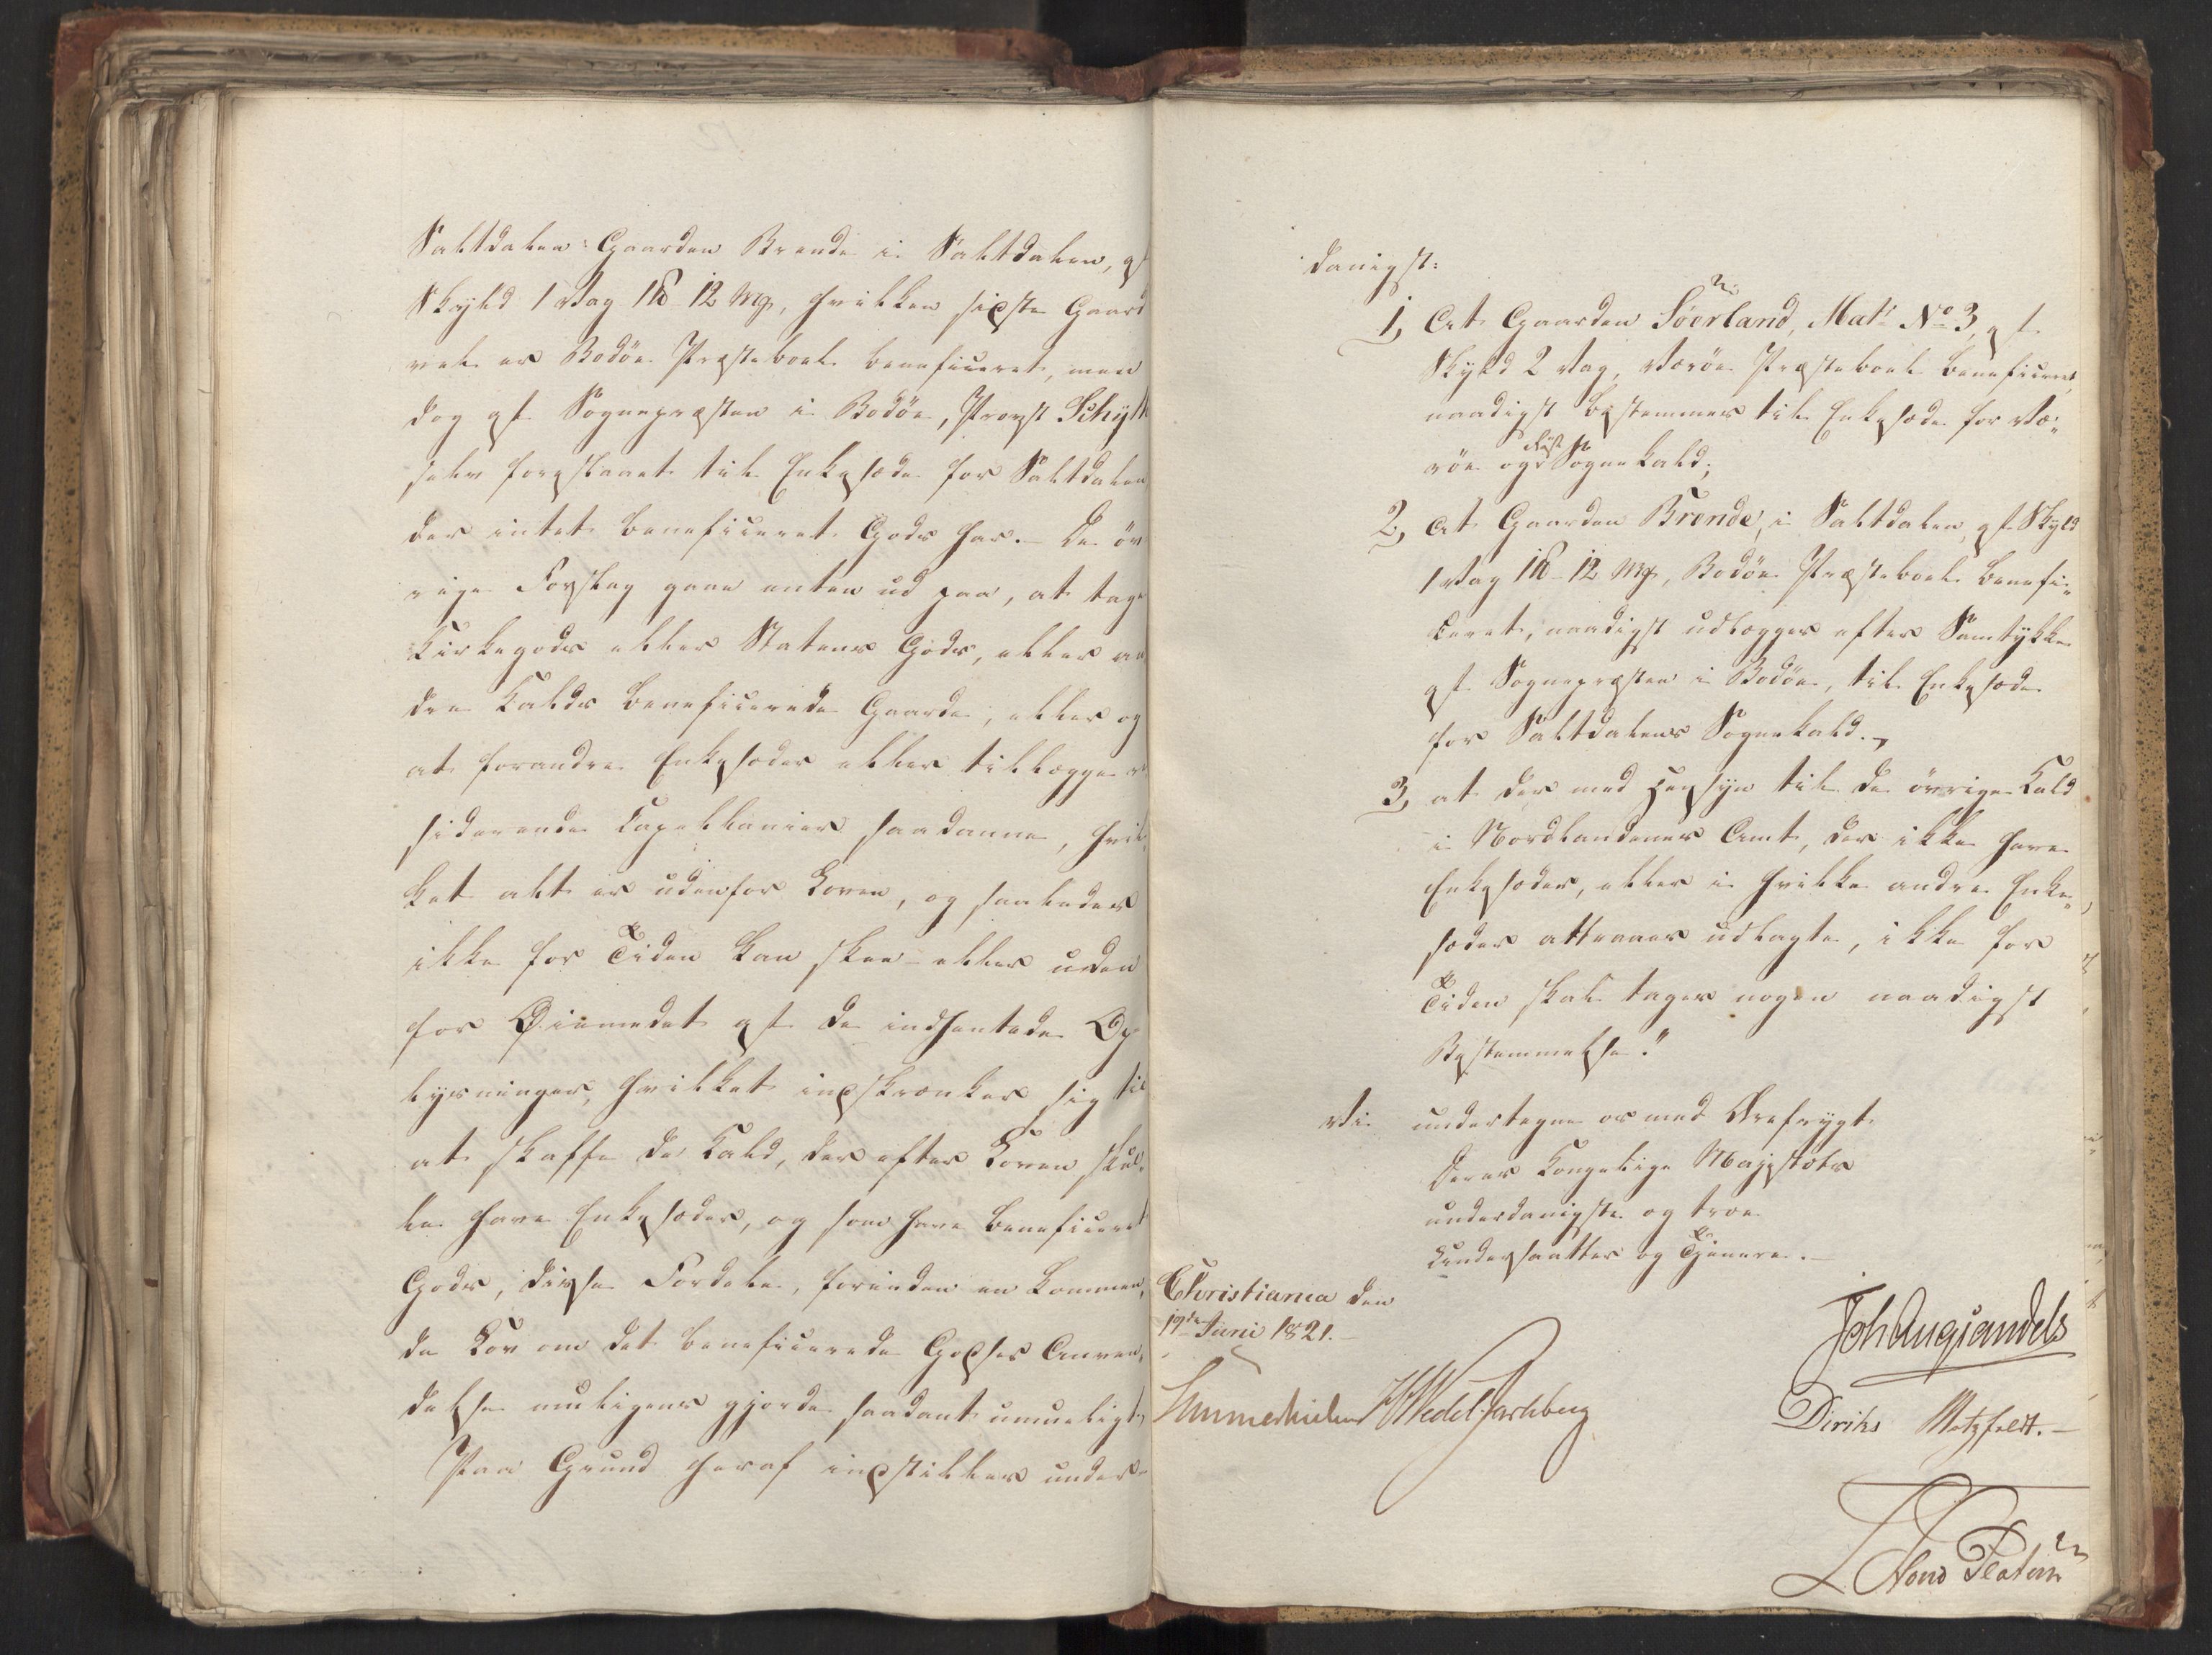 Saltdalen: Gaarden Brende i Saltdalen, af
Skyld 1 Vog 1 ℔ 12 Mk, hvilken sidste Gaard
vel er Bodøe Præsteboel beneficeret, men
dog af Sognepræsten i Bodøe, Provst Schytte
selv foreslaaet til Enkesæde for Saltdalen
der intet beneficeret Gods har. – De øv
rige Forslag gaae enten ud paa, at tage
Kirkegods eller Statens Gods, eller an
dre Kalds beneficerede Gaarde, eller og
at forandre Enkesæder eller tillægge re
siderende Capellanier saadanne, hvil
ket alt er udenfor Loven, og saaledes
ikke for Tiden kan skee – eller uden
for Øiemedet af de indhentede Op
lysninger, hvilket indskrænker sig til
at skaffe de Kald, der efter Loven skul
le have Enkesæder, og som have beneficeret
Gods, disse Fordele, forinden en kommen,
de Lov om det beneficerede Godses Anven,
delse muligens gjorde saadant umueligt,
Paa Grund heraf indstilles under-
danigst:
1, At Gaarden Søerland, Matr No 3, af
Skyld 2 Vog, Værøe Præsteboel beneficeret,
naadigst bestemmes til Enkesæde for Væ„
røe og Røst Sognekald;
2, At Gaarden Brende, i Saltdalen, af Skyld
1 Vog 1 ℔ 12 Mk, Bodøe Præsteboel benefi„
ceret, naadigst udlægges efter Samtykke
af Sognepræsten i Bodøe, til Enkesæde
for Saltdalens Sognekald. –
3, at der med Hensyn til de øvrige Kald
i Nordlandenes Amt, der ikke have
Enkesæder, eller i hvilke andre Enke„
sæder attraaes udlagte, ikke for
Tiden skal tages nogen naadigst
Bestemmelse."
Vi undertegne os med Ærefrygt
Deres Kongelige Majestæts
underdanigste og troe
Undersaatter og Tjenere. –
Christiania den
19de Juni 1821. –
Joh Aug Sandels
Sommerhielm HWedel Jarlsberg
Diriks Motzfeldt. –